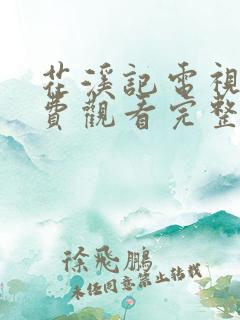 花溪記電視
費觀看完整
徐飛鵬
未經同意禁止轉載